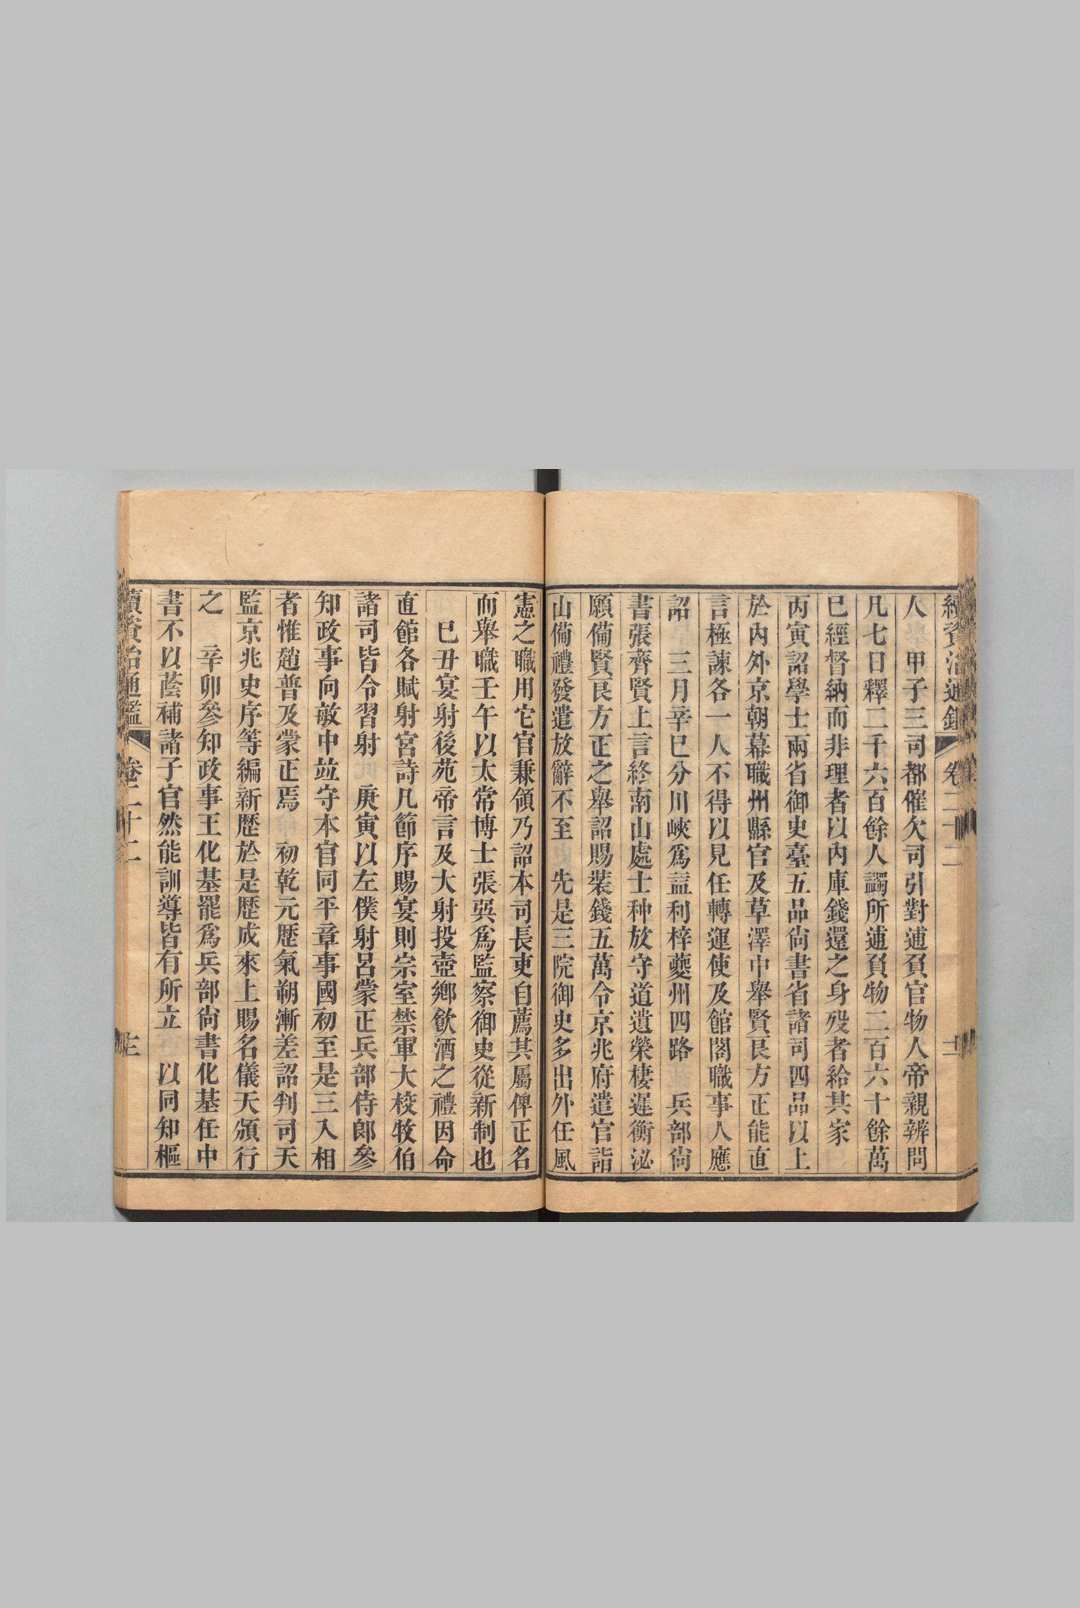 續資治通鑑 卷二十二 十二
人 甲子三司都催欠司引對逋負官物人帝親辨問
凡七日釋二千六百餘人蠲所逋負物二百六十餘萬
已經督納而非理者以內庫錢還之身歿者給其家
丙寅詔學士兩省御史臺五品尙書省諸司四品以上
於內外京朝幕職州縣官及草澤中舉賢良方正能直
言極諫各一人不得以見任轉運使及館閣職事人應
詔 三月辛巳分川峽爲益利梓夔州四路 兵部尙
書張齊賢上言終南山處士种放守道遺榮棲遲衡泌
願備賢良方正之舉詔賜裝錢五萬令京兆府遣官詣
山備禮發遣放辭不至 先是三院御史多出外任風
憲之職用它官兼領乃詔本司長吏自薦其屬俾正名
而舉職壬午以太常博士張巽爲監察御史從新制也
己丑宴射後苑帝言及大射投壺鄉飲酒之禮因命
直館各賦射宮詩凡節序賜宴則宗室禁軍大校牧伯
諸司皆令習射 庚寅以左僕射呂蒙正兵部侍郎參
知政事向敏中竝守本官同平章事國初至是三入相
者惟趙普及蒙正焉 初乾元歴氣朔漸差詔判司天
監京兆史序等編新歴於是歴成來上賜名儀天頒行
之 辛卯參知政事王化基罷爲兵部尙書化基任中
書不以蔭補諸子官然能訓導皆有所立 以同知樞
續資治通鑑 卷二十二 十三